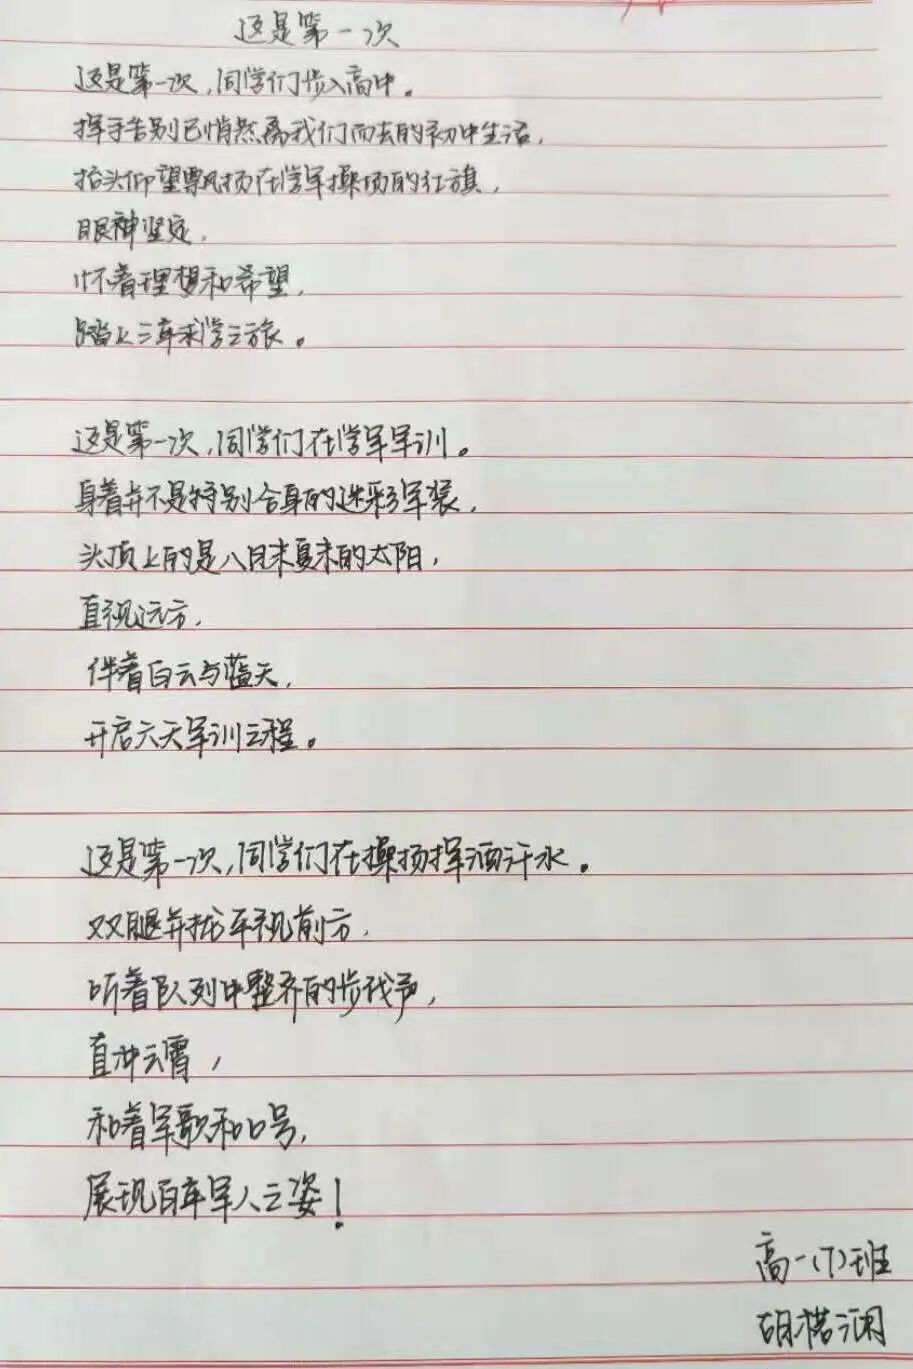 这是第一次
这是第一次,同学们步入高中。
挥手告别已悄然离我们而去的初中生活,
抬头仰望飘扬在学军操场的红旗,
眼神坚定,
怀着理想和希望,
踏上三年求学之旅。
这是第一次,同学们在学军军训。
身着并不是特别合身的迷彩军装,
头顶上的是八月末夏末的太阳,
直视远方,
伴着白云与蓝天,
开启六天军训之程。
这是第一次,同学们在操场挥洒汗水。
双腿并拢平视前方,
听着队列中整齐的步伐声,
直冲云霄,
和着军歌和口号,
展现百年军人之姿!
高一(7)班
胡